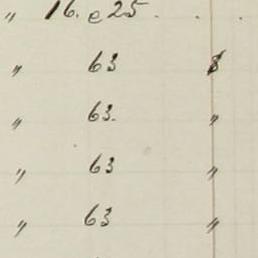 " 16. e 25 . . .
" 63 $
" 63. "
" 63 "
" 63 "